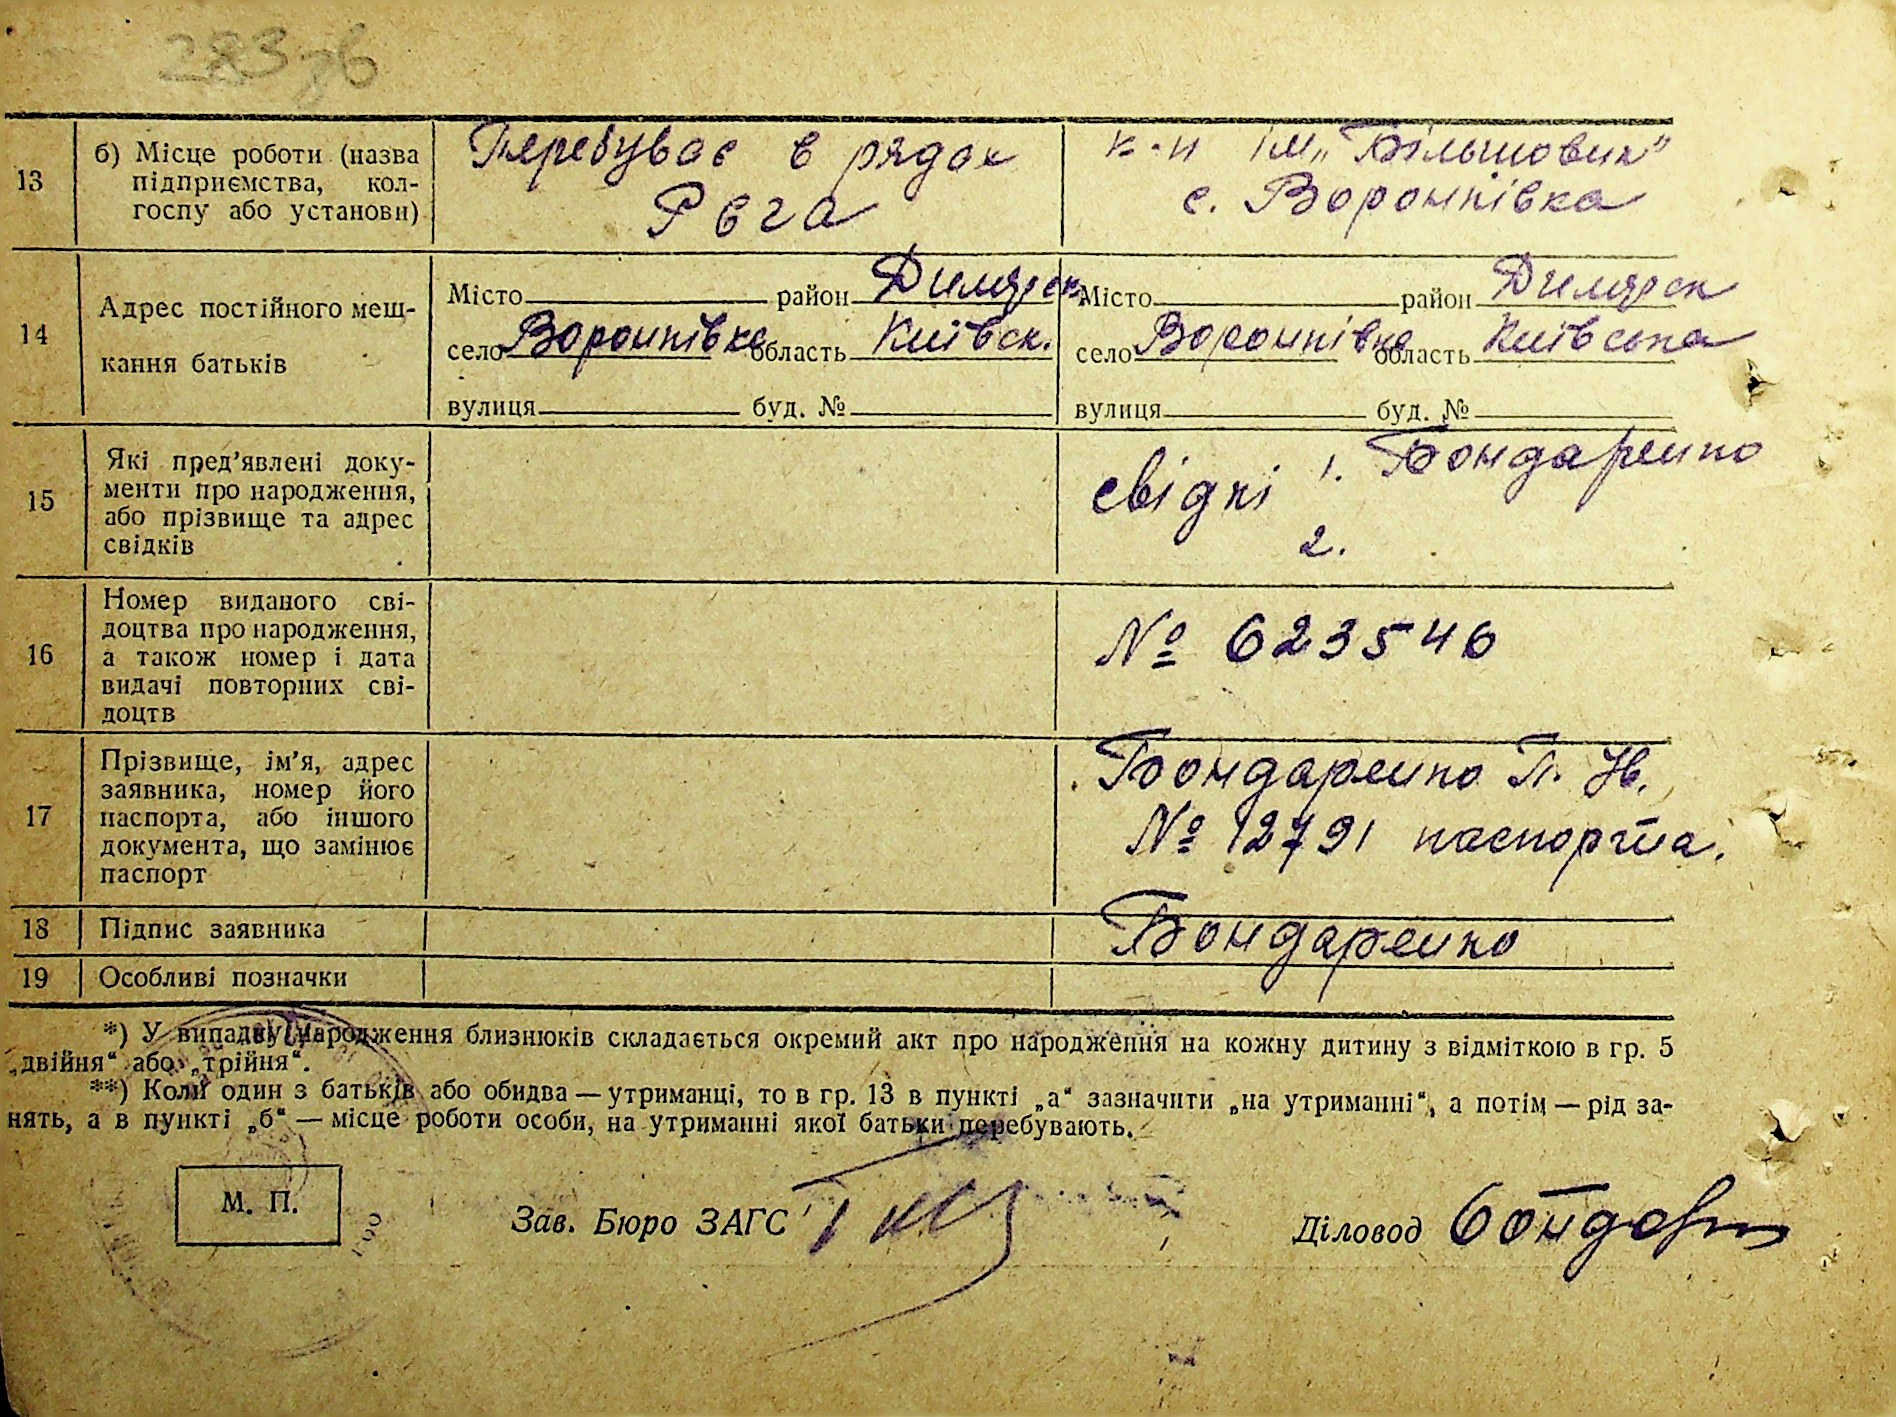 283 зв
13
б) Місце роботи (назва
підприємства, кол-
госпу або установи)
Перебуває в рядах
Рвга
к-п ім. „Більшовик"
с. Воронківка
14
Адрес постійного меш-
кання батьків
Місто район Димерск
село Воронківка область Київск.
вулиця буд. №
Місто район Димерск
село Воронківка область Київська
вулиця буд. №
15
Які пред'явлені доку-
менти про народження,
або прізвище та адрес
свідків
свідкі 1. Бондаренко
2.
16
Номер виданого сві-
доцтва про народження,
а також номер і дата
видачі повторних сві-
доцтв
№ 623546
17
Прізвище, ім'я, адрес
заявника, номер його
паспорта, або іншого
документа, що замінює
паспорт
Бондаренко П. Ів.
№ 12791 паспорта.
18
Підпис заявника
Бондаренко
19
Особливі позначки
*) У випадку народження близнюків складається окремий акт про народження на кожну дитину з відміткою в гр. 5
„двійня" або „трійня".
**) Коли один з батьків або обидва — утриманці, то в гр. 13 в пункті „а" зазначити „на утриманні", а потім — рід за-
нять, а в пункті „б" — місце роботи особи, на утриманні якої батьки перебувають.
М. П.
Зав. Бюро ЗАГС
Діловод